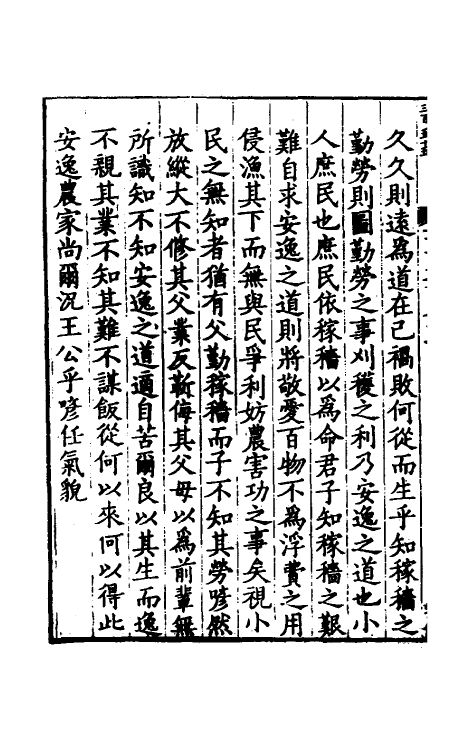 久久則遠爲道在已禍敗何從而生乎知稼穡之
勤勞則圖勤勞之事刈穫之利乃安逸之道也小
人庶民也庶民依稼穡以爲命君子知稼穡之艱
難自求安逸之道則將敬愛百物不爲浮費之用
侵漁其下而無與民爭利妨農害功之事矣視小
民之無知者猶有父勤稼穡而子不知其勞喭然
放縱大不修其父業反靳侮其父母以爲前輩無
所識知不知安逸之道適自苦爾良以其生而逸
不親其業不知其難不謀飯從何以來何以得此
安逸農家尚爾況王公乎喭任氣貌